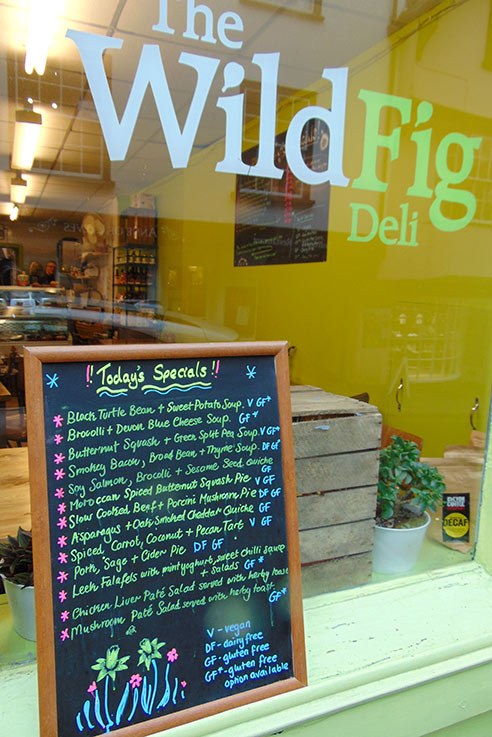 The
Wild Fig
Deli
!! Today's Specials !!
Black Turtle Bean + Sweet Potato Soup. V GF*
Brocolli + Devon Blue Cheese Soup. GF*
Butternut Squash + Green Split Pea Soup. V GF*
Smokey Bacon, Broad Bean + Thyme Soup. DF GF*
Soy Salmon, Brocolli + Sesame Seed Quiche GF
Moroccan Spiced Butternut Squash Pie V GF
Slow Cooked Beef + Porcini Mushroom Pie DF GF
Asparagus + Oak Smoked Cheddar Quiche GF
Spiced Carrot, Coconut + Pecan Tart V GF
Pork, Sage + Cider Pie DF GF
Leek Falafels with mint yoghurt, sweet chilli sauce + salads GF*
Chicken Liver Paté Salad served with herby toast
Mushroom Paté Salad served with herby toast. GF*
V - vegan
DF - dairy free
GF - gluten free
GF* - gluten free
option available
DECAF